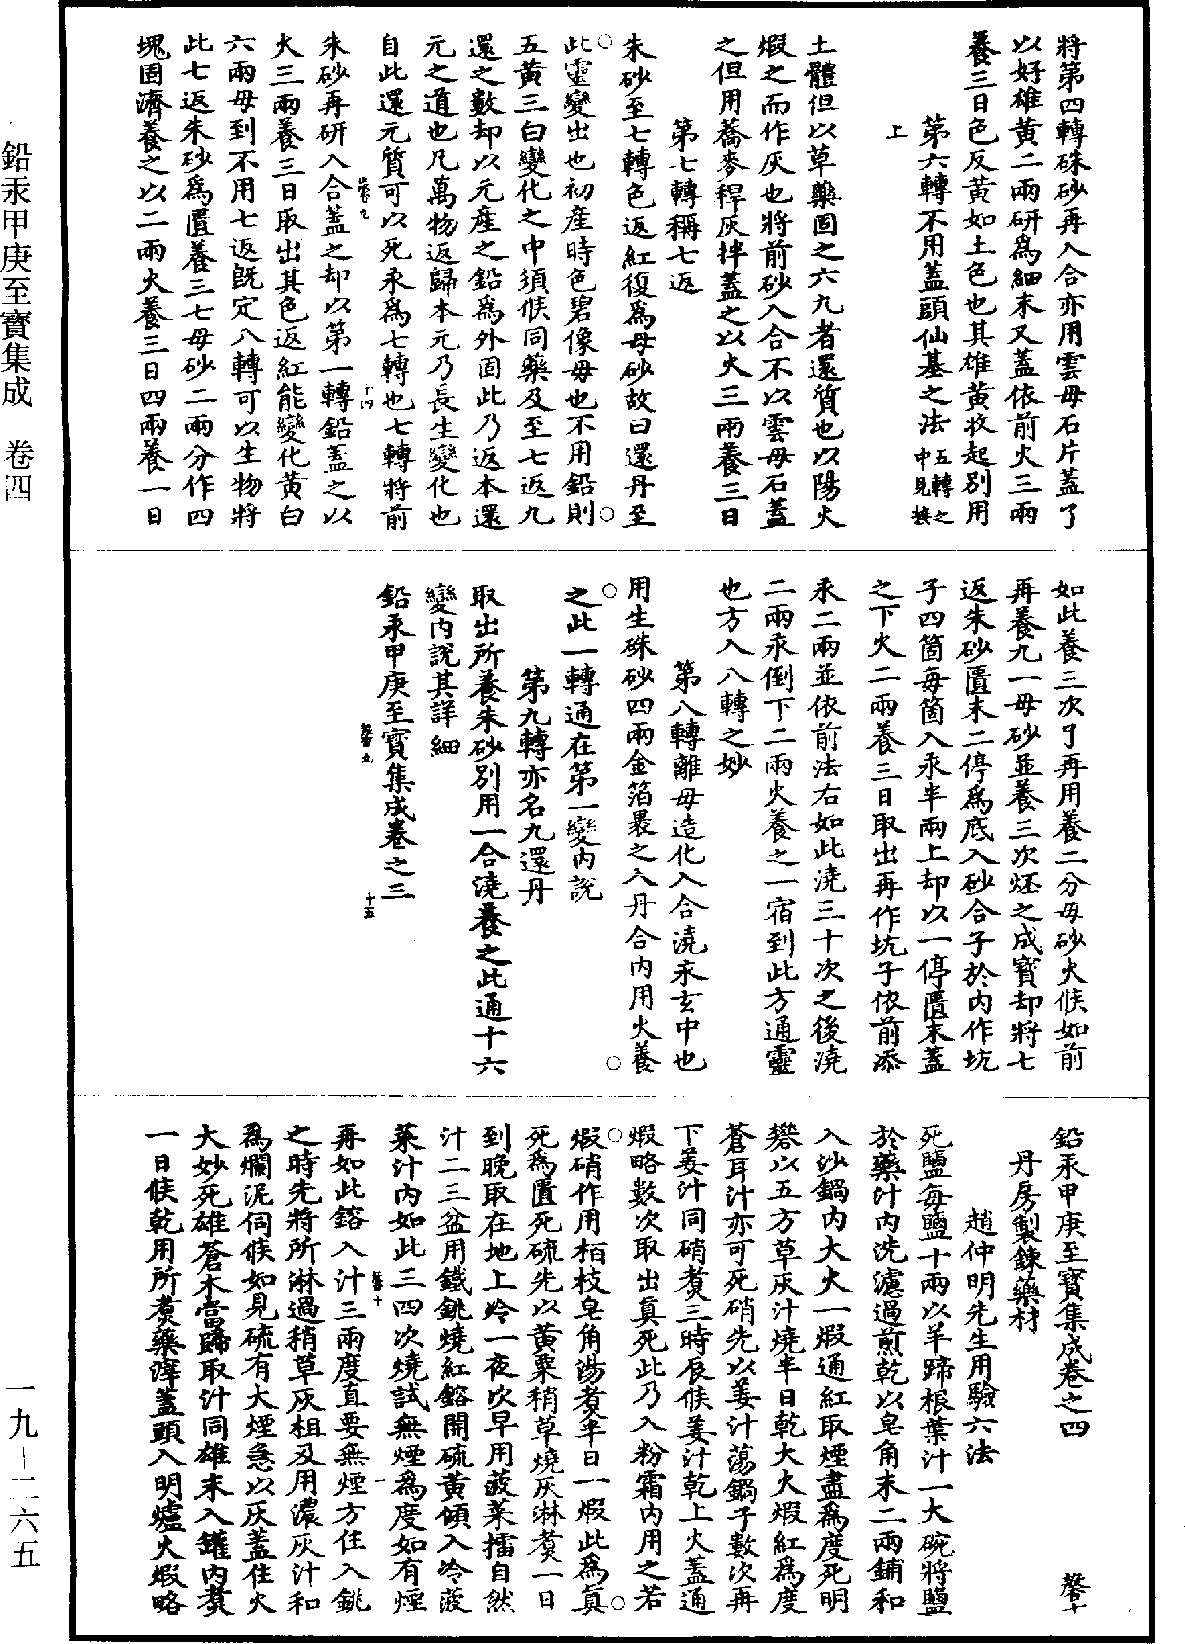 鉛汞甲庚至寶集成　卷四
將第四轉硃砂再入合亦用雲母石片蓋了
以好雄黃二兩研爲細末又蓋依前火三兩
養三日色反黃如土色也其雄黃收起別用
第六轉不用蓋頭仙基之法五轉之中見換
上
土體但以草藥固之六九者還質也以陽火
煅之而作灰也將前砂入合不以雲母石蓋
之但用蕎麥稈灰拌蓋之以火三兩養三日
第七轉稱七返
朱砂至七轉色返紅復爲母砂故曰還丹至
此靈變出也初產時色碧像母也不用鉛則
五黃三白變化之中須候同藥及至七返九
還之數却以元產之鉛爲外固此乃返本還
元之道也凡萬物返歸本元乃長生變化也
自此還元質可以死汞爲七轉也七轉將前
朱砂再研入合蓋之却以第一轉鉛蓋之以
火三兩養三日取出其色返紅能變化黃白
六兩母到不用七返旣定八轉可以生物將
此七返朱砂爲匱養三七母砂二兩分作四
塊固濟養之以二兩火養三日四兩養一日
如此養三次了再用養二分母砂火候如前
再養九一母砂並養三次烎之成寶却將七
返朱砂匱末二停爲底入砂合子於內作坑
子四箇每箇入汞半兩上却以一停匱末蓋
之下火二兩養三日取出再作坑子依前添
汞二兩並依前法右如此澆三十次之後澆
二兩汞倒下二兩火養之一宿到此方通靈
也方入八轉之妙
第八轉離母造化入合澆汞玄中也
用生硃砂四兩金箔裹之入丹合內用火養
之此一轉通在第一變內說
第九轉亦名九還丹
取出所養朱砂別用一合澆養之此通十六
變內說其詳細
鉛汞甲庚至寶集成卷之三
十五
鉛汞甲庚至寶集成卷之四　馨十
丹房製鍊藥材
趙仲明先生用驗六法
死鹽每鹽十兩以羊蹄根葉汁一大碗將鹽
於藥汁內洗濾過煎乾以皂角末二兩鋪和
入沙鍋內大火一煅通紅取煙盡爲度死明
礬以五方草灰汁燒半日乾大火煅紅爲度
蒼耳汁亦可死硝先以姜汁蕩鍋子數次再
下姜汁同硝煑三時辰候姜汁乾上火蓋通
煅略數次取出眞死此乃入粉霜內用之若
煅硝作用栢枝皂角湯煑半日一煅此爲眞
死爲匱死硫先以黃粟稍草燒灰淋煑一日
到晚取在地上冷一夜次早用菠菜擂自然
汁二三盆用鐵銚燒紅鎔開硫黃傾入冷菠
菜汁內如此三四次燒試無煙爲度如有煙
再如此鎔入汁三兩度直要無煙方住入銚
之時先將所淋過稍草灰柤及用濃灰汁和
爲爛泥伺候如見硫有大煙急以灰蓋住火
大妙死雄蒼木當歸取汁同雄末入罐內煑
一日候乾用所煑藥滓蓋頭入明爐火煅略
一九－二六五